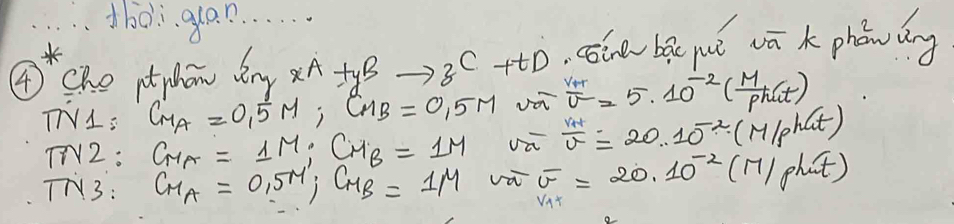 ..... thời gian......
④* Cho ptphản ứng xA + yB → zC + tD. Tính bậc pứ và k phản ứng
TN1: CMA = 0,5M; CMB = 0,5M và v̅ = 5.10⁻² (M/phút)
TN2: CMA = 1M; CMB = 1M và v̅ = 20.10⁻² (M/phút)
TN3: CMA = 0,5M; CMB = 1M và v̅ = 20.10⁻² (M/phút)